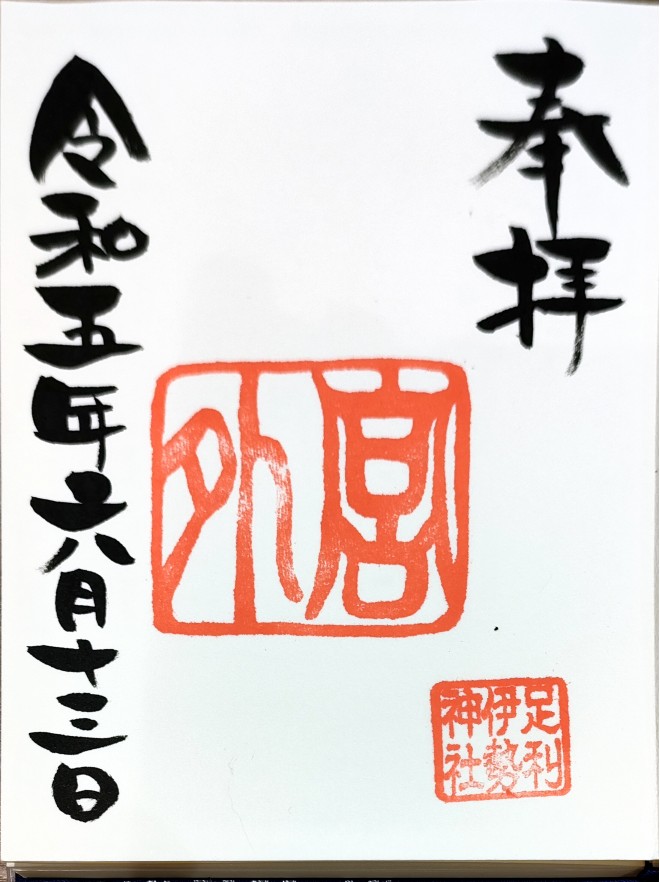 奉拝
外宮
足利
伊勢
神社
令和五年六月十三日